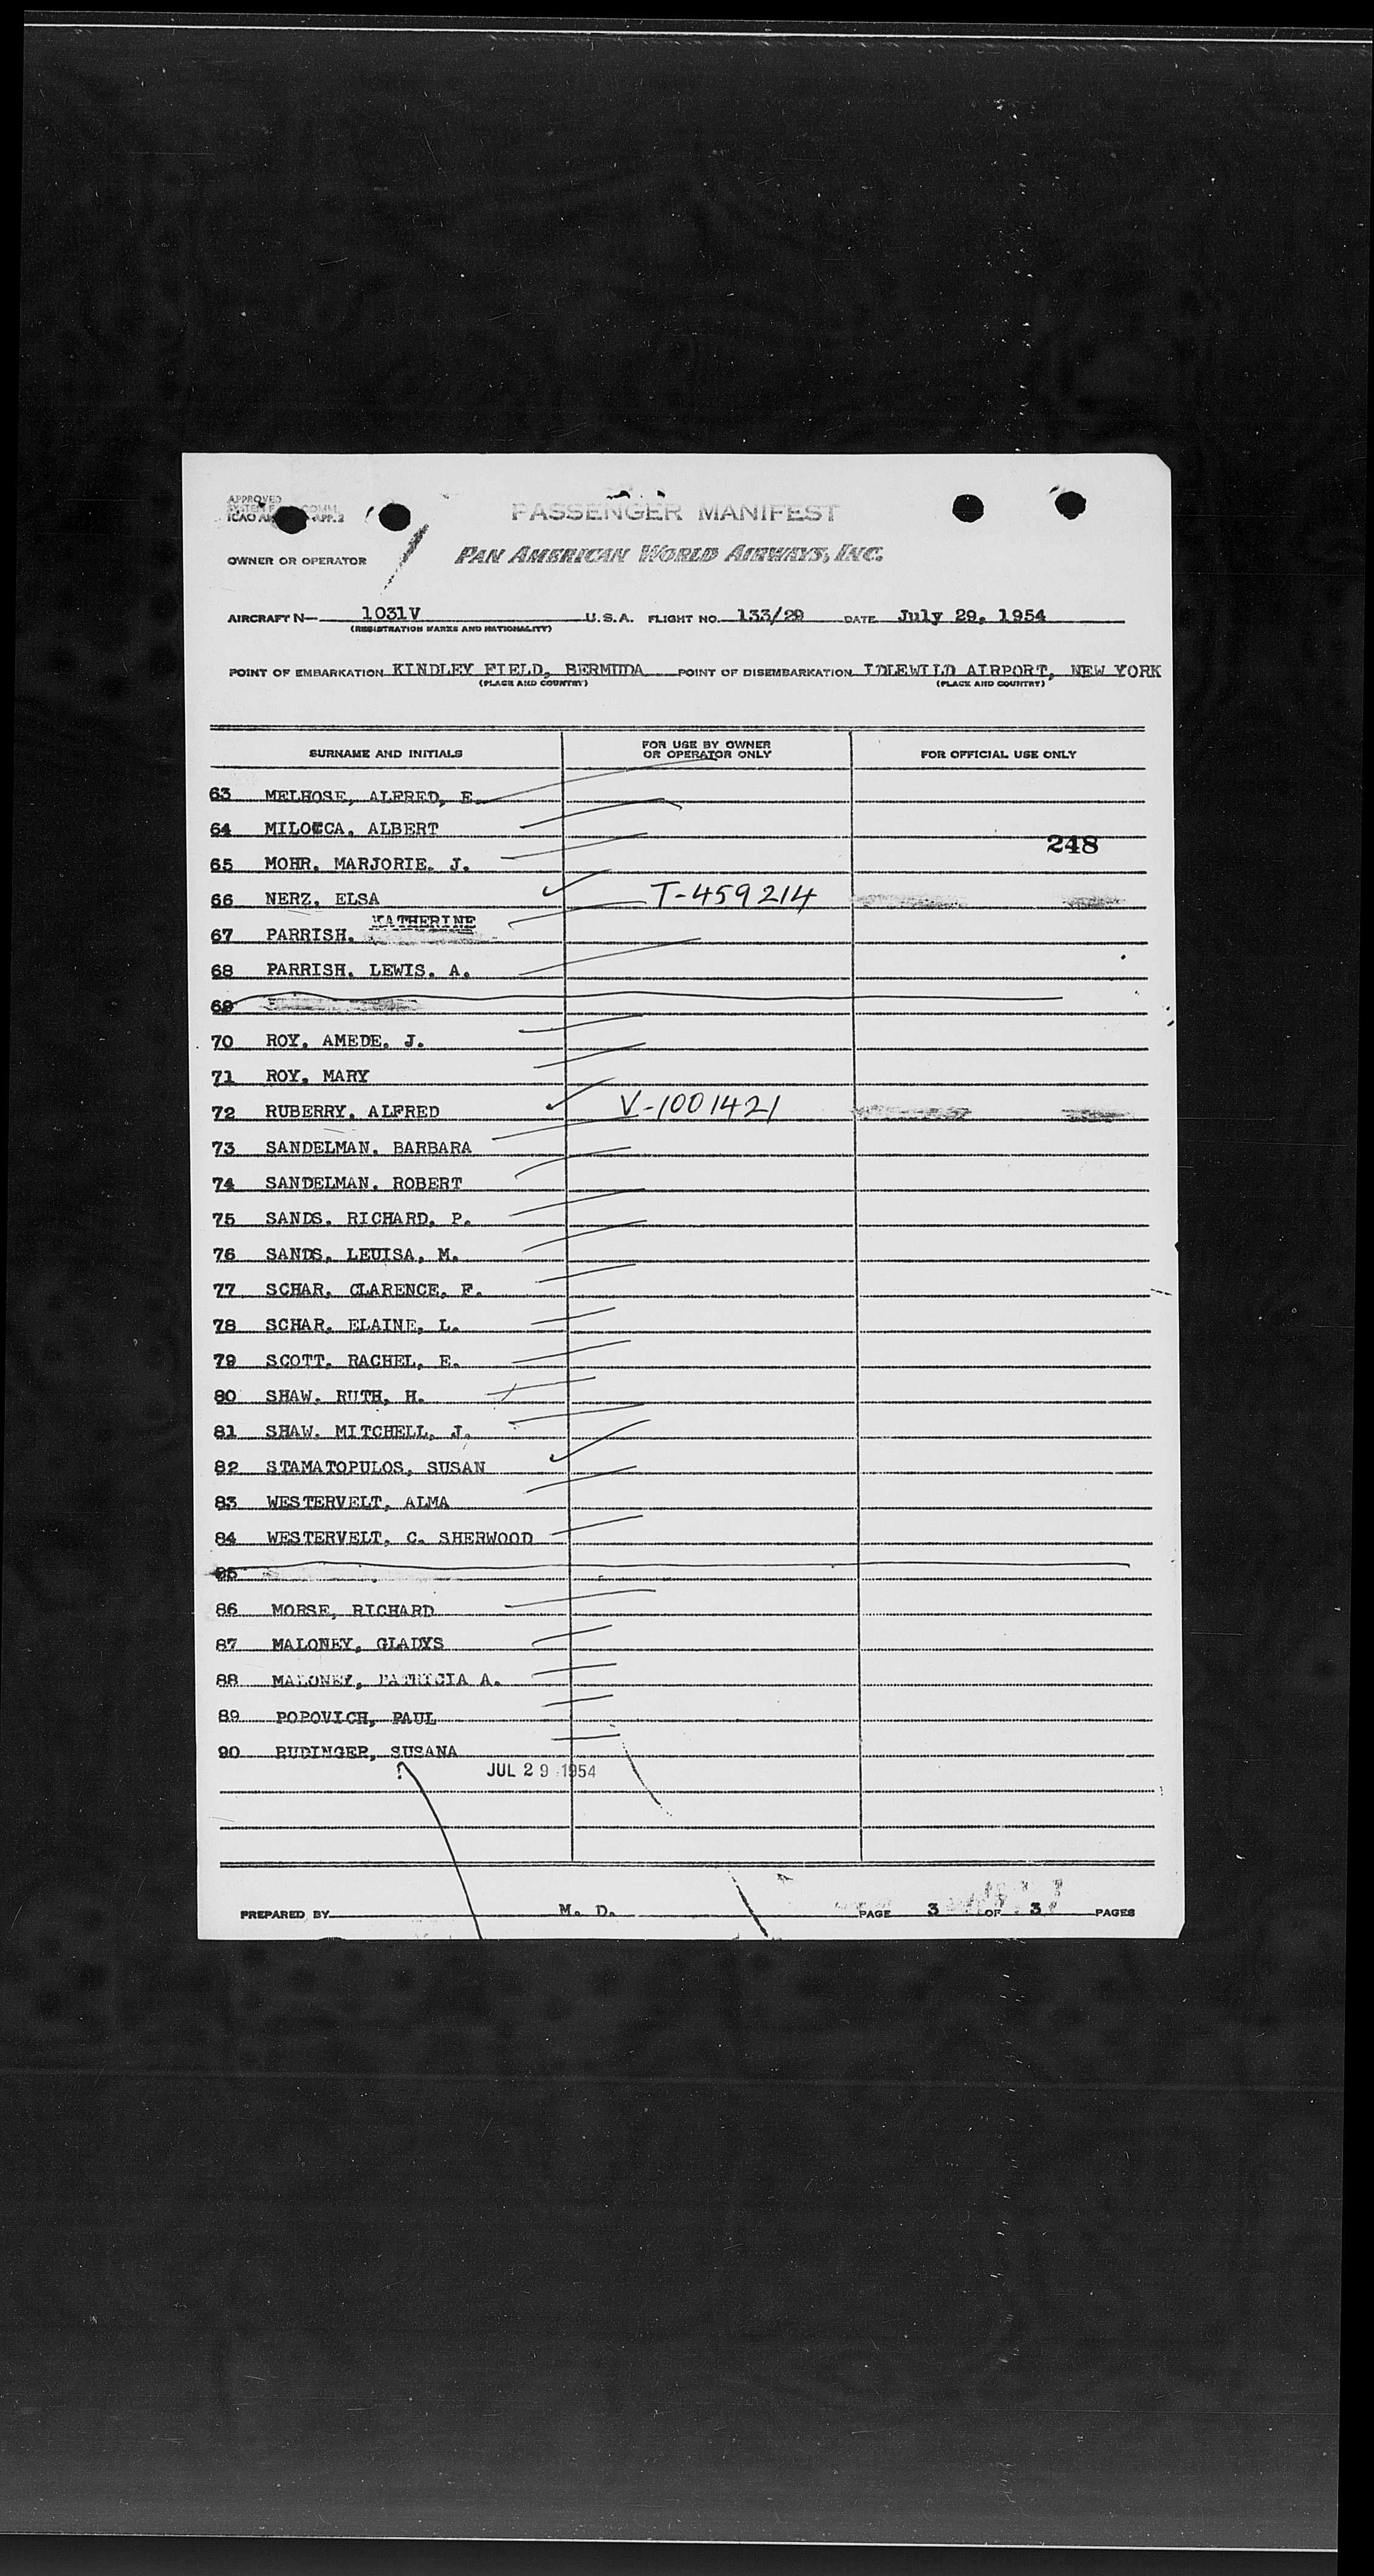 APPROVED
ICAO APP. 2
PASSENGER MANIFEST
OWNER OR OPERATOR PAN AMERICAN WORLD AIRWAYS, INC.
AIRCRAFT N— 1031V U.S.A. FLIGHT NO. 133/29 DATE July 29, 1954
(REGISTRATION MARKS AND NATIONALITY)
POINT OF EMBARKATION KINDLEY FIELD, BERMUDA POINT OF DISEMBARKATION IDLEWILD AIRPORT, NEW YORK
(PLACE AND COUNTRY) (PLACE AND COUNTRY)
SURNAME AND INITIALS FOR USE BY OWNER OR OPERATOR ONLY FOR OFFICIAL USE ONLY
63 MELHOSE, ALFRED, E.
64 MILOCCA, ALBERT
248
65 MOHR, MARJORIE, J.
66 NERZ, ELSA T-459214
67 PARRISH, KATHERINE
68 PARRISH, LEWIS, A.
69
70 ROY, AMEDE, J.
71 ROY, MARY
72 RUBERRY, ALFRED V-1001421
73 SANDELMAN, BARBARA
74 SANDELMAN, ROBERT
75 SANDS, RICHARD, P.
76 SANDS, LEUISA, M.
77 SCHAR, CLARENCE, F.
78 SCHAR, ELAINE, L.
79 SCOTT, RACHEL, E.
80 SHAW, RUTH, H.
81 SHAW, MITCHELL, J.
82 STAMATOPULOS, SUSAN
83 WESTERVELT, ALMA
84 WESTERVELT, C. SHERWOOD
85
86 MORSE, RICHARD
87 MALONEY, GLADYS
88 MALONEY, PATRICIA A.
89 POPOVICH, PAUL
90 RUDINGER, SUSANA
JUL 29 1954
PREPARED BY M. D. PAGE 3 OF 3 PAGES